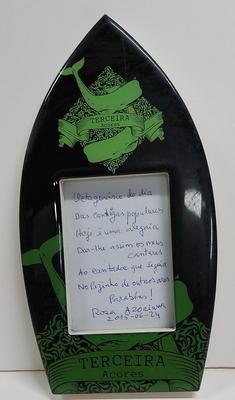 TERCEIRA
Açores
do dia
Das cantigas populares
Hoje é uma alegria
Dar-lhe assim os meus
cantares
Ao cantador que seguia
No Pezinho de outros ares
Parabéns!
Rosa Azoriana
2015-06-24
TERCEIRA
Açores